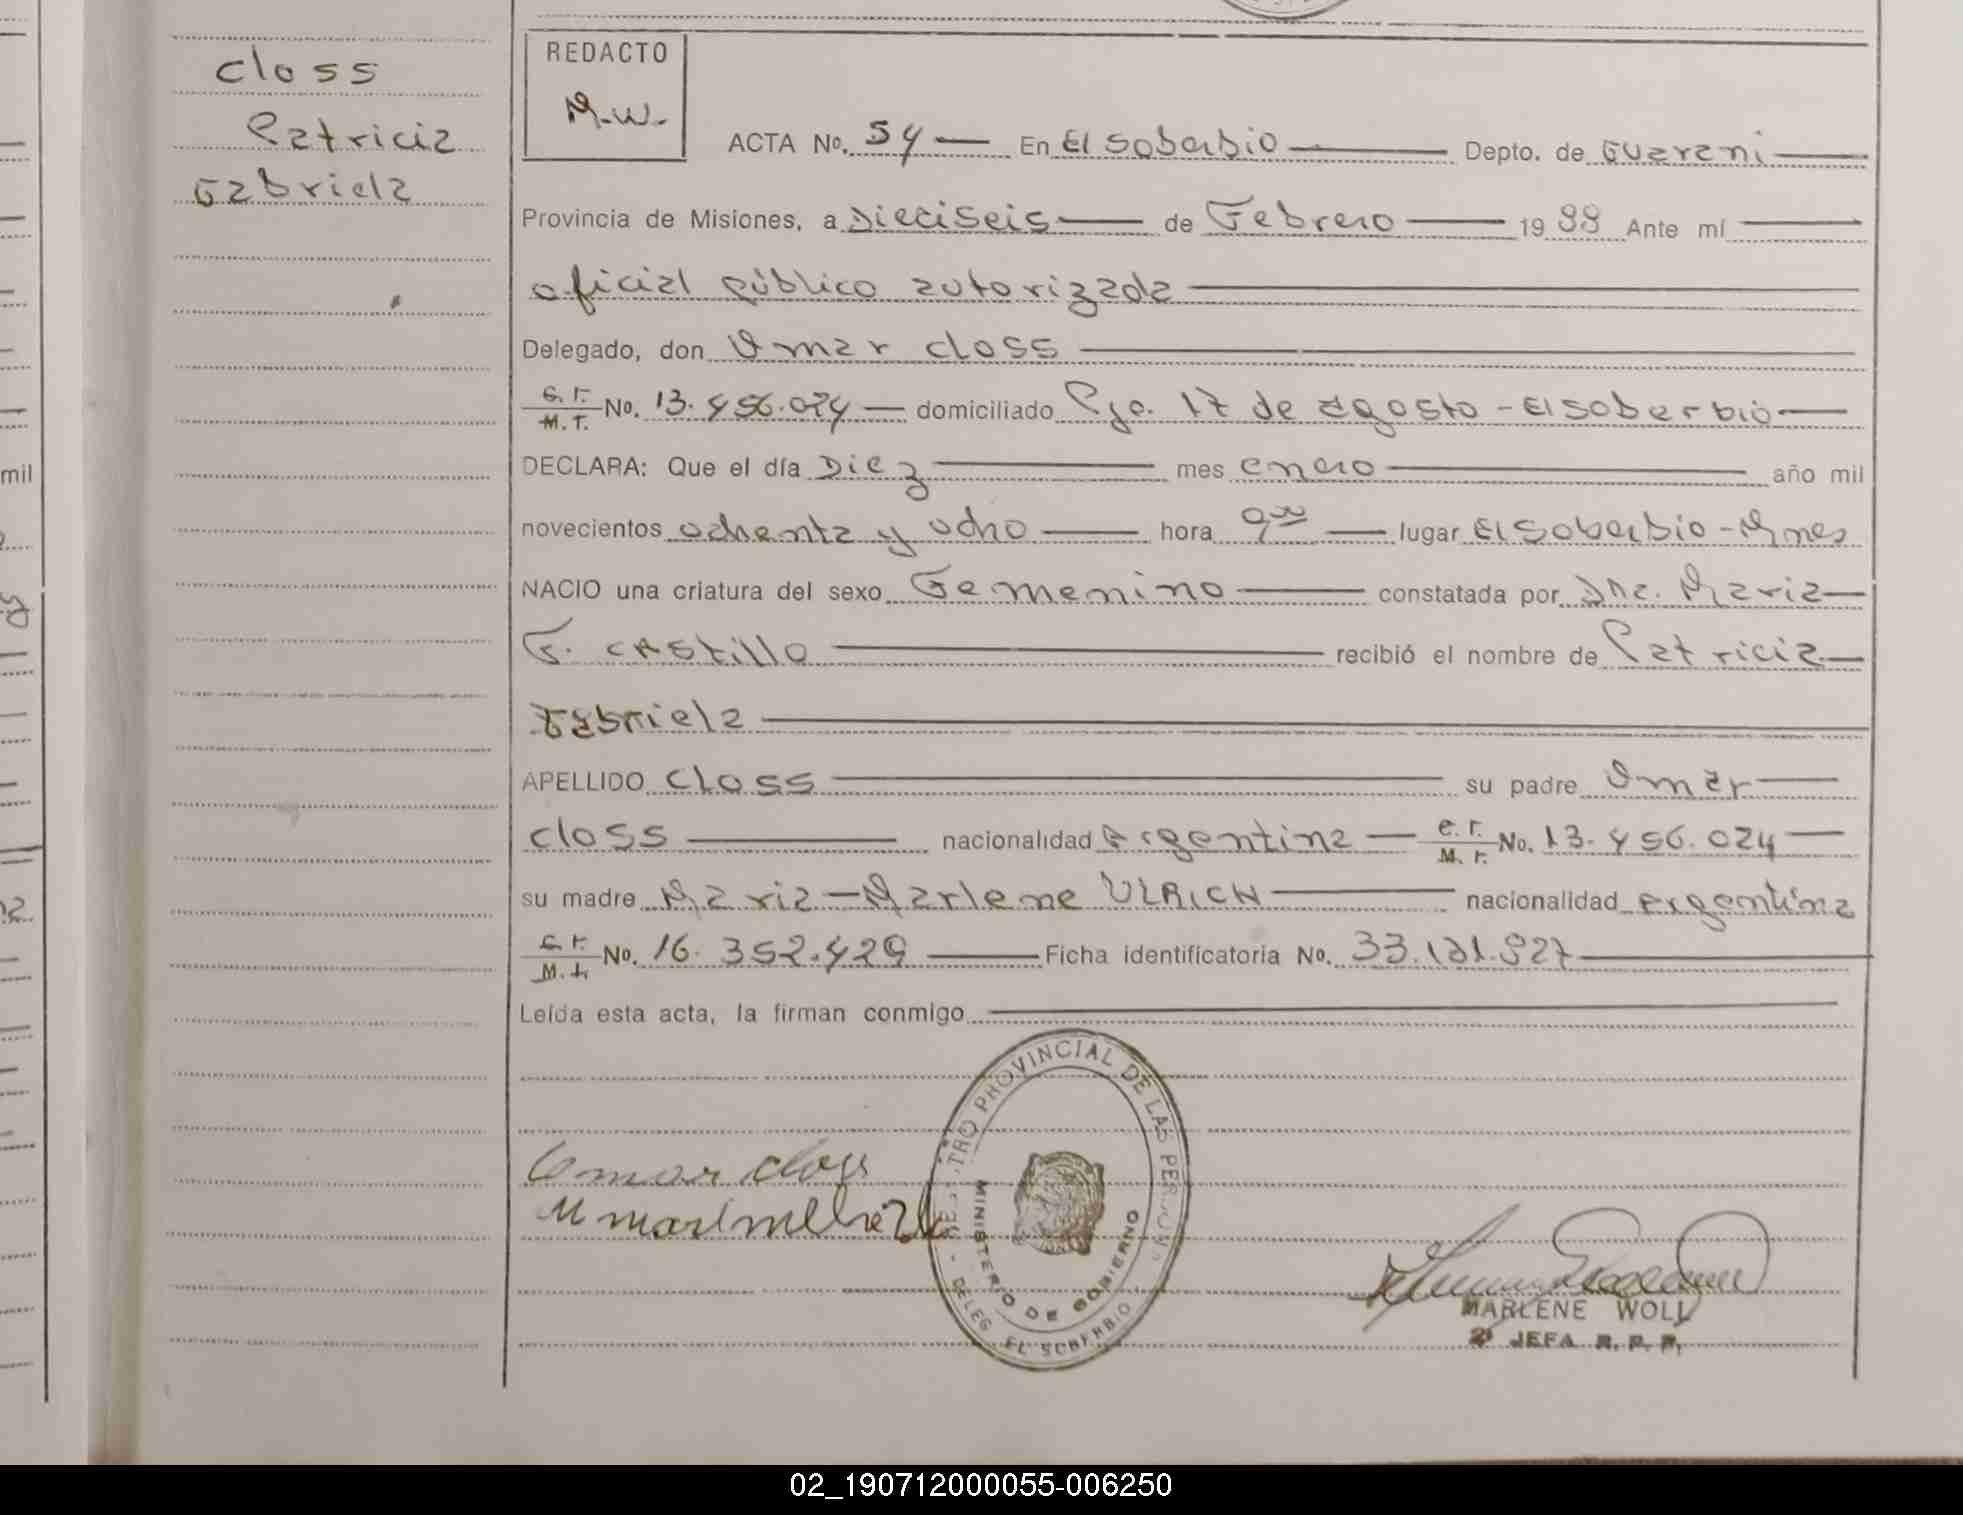 Closs
Patricia
Gabriela
REDACTO
M.W.
ACTA No. 54 — En El Soberbio — Depto. de Guarani —
Provincia de Misiones, a Dieciseis — de Febrero — 19 88 Ante mí —
oficial público autorizada —
Delegado, don Omar Closs —
M.I. No. 13.456.024 — domiciliado Pje. 17 de agosto - El Soberbio —
DECLARA: Que el día Diez — mes enero — año mil
novecientos ochenta y ocho — hora 9 00 — lugar El Soberbio - Mnes
NACIO una criatura del sexo Femenino — constatada por Dra. Maria —
G. Castillo — recibió el nombre de Patricia —
Gabriela —
APELLIDO Closs — su padre Omar —
Closs — nacionalidad Argentina — M.I. No. 13.456.024 —
su madre Maria — Marlene ULRICH — nacionalidad argentina
M.I. No. 16.352.429 — Ficha identificatoria No. 33.131.927 —
Leída esta acta, la firman conmigo —
PROVINCIAL DE LAS
MINISTERIO DE GOBIERNO
DELEG. EL SOBERBIO
Omar Closs
MARLENE WOLL
2ª JEFA R. P. P.
mil
02_190712000055-006250